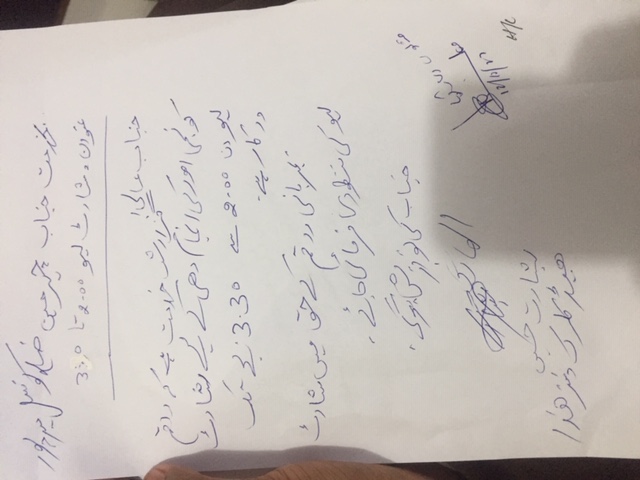 بخدمت جناب چیرمین ضلع کونسل میرپور
عنوان: شارٹ لیو 2:00 تا 3:30
جناب عالی!
گزارش خدمت ہے کہ راقم
کو نجی امور کی انجام دہی کے لیے شارٹ
لیو دن 2:00 سے 3:30 بجے تک
درکار ہے۔
مہربانی راقم کے حق میں شارٹ
لیو کی منظوری فرمائی جائے۔
جناب کی نوازش ہوگی۔
العارض
بشارت حسین
ہیڈ کلرک دفتر ھذا